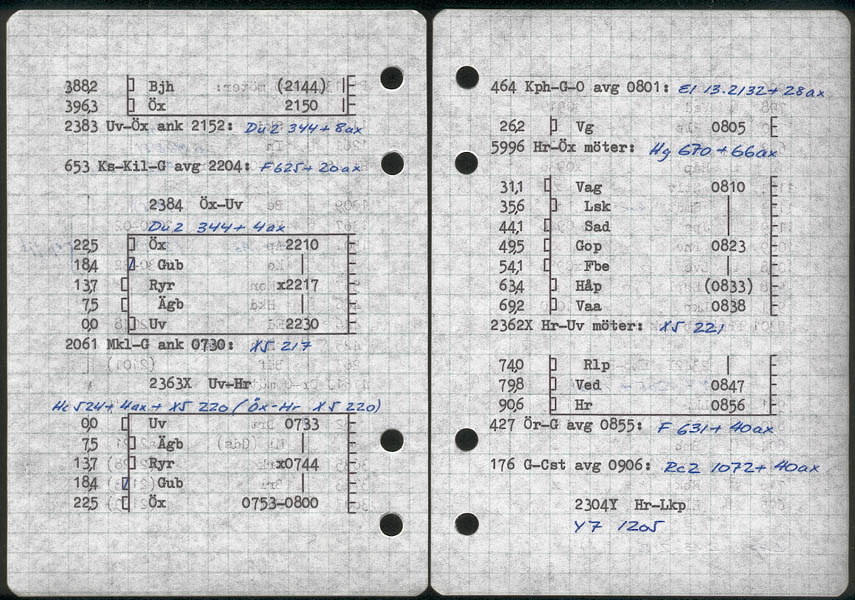 388,2 Bjh (2144)
396,3 Öx 2150
2383 Uv-Öx ank 2152: Du2 344 + 8ax
653 Ks-Kil-G avg 2204: F625 + 20ax
2384 Öx-Uv
Du2 344 + 4ax
22,5 Öx 2210
18,4 Gub |
13,7 Ryr x2217
7,5 Ägb |
0,0 Uv 2230
2061 Mkl-G ank 0730: X5 217
2363X Uv-Hr
Hc 524 + 4ax + X5 220 (Öx-Hr X5 220)
0,0 Uv 0733
7,5 Ägb |
13,7 Ryr x0744
18,4 Gub |
22,5 Öx 0753-0800
464 Kph-G-O avg 0801: El 13.2132 + 28ax
26,2 Vg 0805
5996 Hr-Öx möter: Hg 670 + 66ax
31,1 Vag 0810
35,6 Lsk |
44,1 Sad |
49,5 Gop 0823
54,1 Fbe |
63,4 Håp (0833)
69,2 Vaa 0838
2362X Hr-Uv möter: X5 221
74,0 Rlp |
79,8 Ved 0847
90,6 Hr 0856
427 Ör-G avg 0855: F 631 + 40ax
176 G-Cst avg 0906: Rc2 1072 + 40ax
2304Y Hr-Lkp
Y7 1205